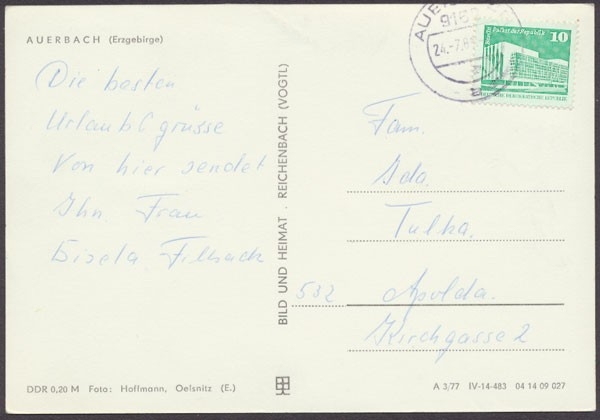 AUERBACH (Erzgebirge)
Die besten
Urlaubsgrüsse
von hier sendet
Ihn. Frau
Gisela Filback
BILD UND HEIMAT . REICHENBACH (VOGTL)
10
Palast der Republik
Fam.
Ida.
Tulka.
532 Apolda.
Kirchgasse 2
DDR 0,20 M Foto: Hoffmann, Oelsnitz (E.)
A 3/77 IV-14-483 04 14 09 027